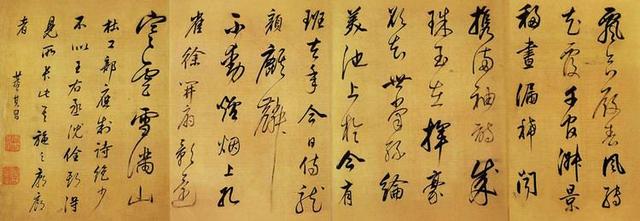 飄合殿春風轉
花覆千官淑景
移晝漏稀聞
携滿袖詩成
珠玉在揮毫
欲知世掌絲綸
美池上於今有
班去年今日侍龍
顏麒麟
不動爐烟上孔
雀徐開扇影還
寒雲雪滿山
杜工部應制詩絕少
不似王右丞沈佺期得
見所長此其施之廊廟
者
董其昌